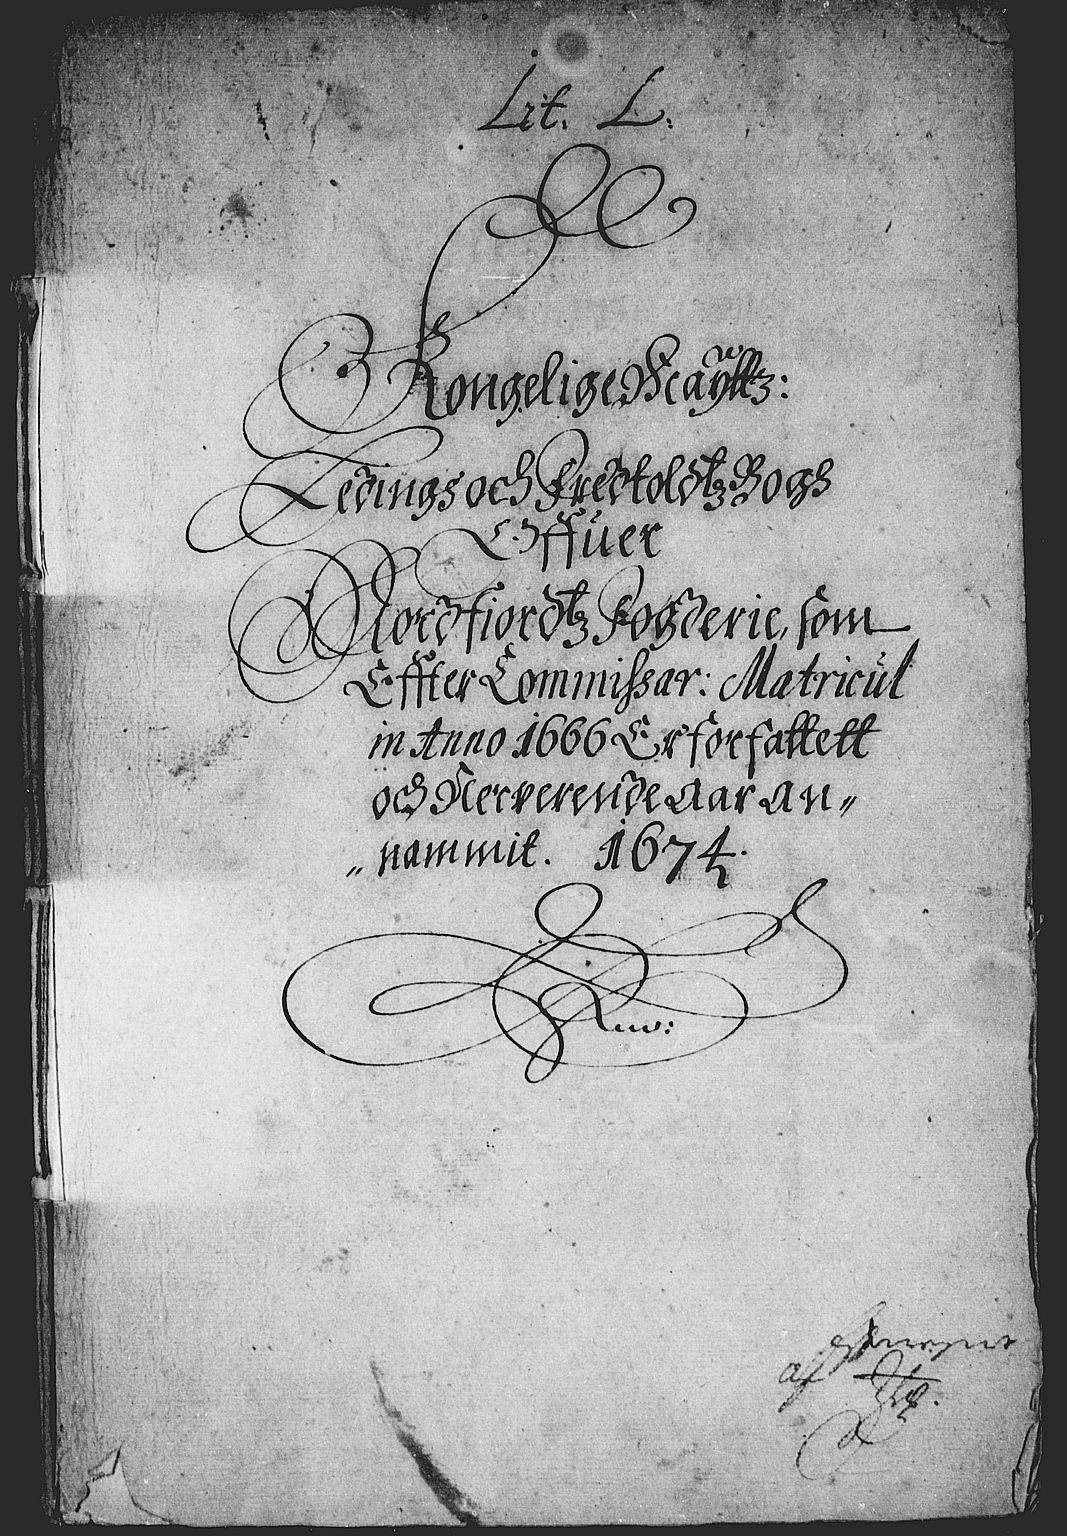 Lit. L:
Kongelige Maÿttz:
Ledings och Fredtoldtz Bogh
Offuer
Nordfiordtz Fogderie, som
Effter Commissar: Matricul
in Anno 1666 Er forfattett
och Nerverende Aar An„
„nammit. 1674.